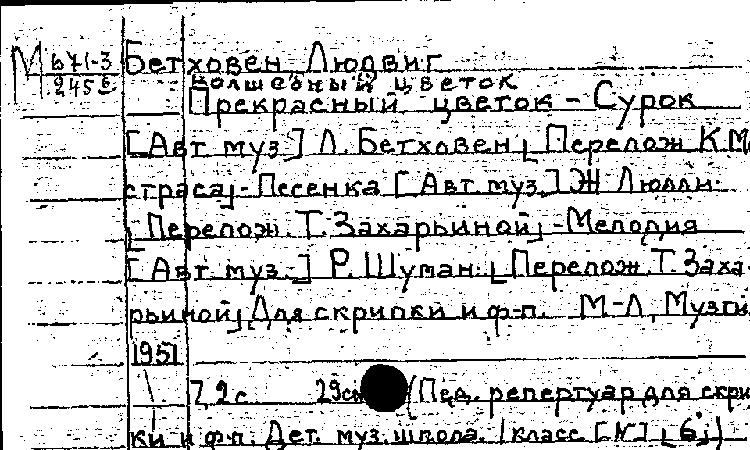 М 671-3 Бетховен Людвиг
2456 Волшебный цветок
Прекрасный цветок – Сурок
[Авт муз.] Л. Бетховен; Перелож К.М
страса; - Песенка [Авт муз.] Ж Люлли.
; Перелож. Т. Захарьиной; - Мелодия
[Авт. муз.] Р. Шуман. ; Перелож. Т. Заха-
рьиной; Для скрипки и ф-п. М-Л, Музги
1951
7, 2 с. 29см (Пед. репертуар для скри
ки и ф-п. Дет. муз. школа. 1 класс. [N] [6])